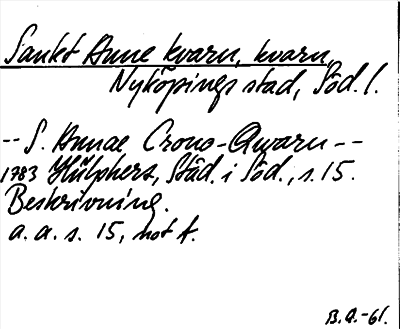 Sankt Anne kvarn, kvarn,
Nyköpings stad, Söd. l.
-- S. Annae Crono-Qwarn --
1783 Hülphers, Städ. i Söd., s. 15.
Beskrivning.
a. a. s. 15, not t.
B. A. -61.